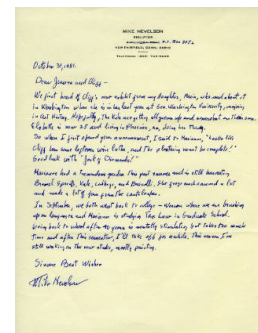 MIKE NEVELSON
SCULPTOR
NEW FAIRFIELD, CONN.
October 31, 1981
Dear Jimmie and Cliff —
We first heard of Cliff's new exhibit from my daughter, Maria, who read about it
in Washington where she is in her last year at Geo. Washington University, majoring
in Art History. Hopefully, the kids are getting
Elsbeth is now 25 and living in
So when I first heard your announcement, I said to Marianne, "Looks like
Cliff has some leftover wire lathe, and the plastering must be complete!"
Good luck with
Marianne had a tremendous garden this past summer and is still harvesting
Brussel Sprouts, Kale, Cabbage, and Broccoli. She grows such an amount
and made a lot of
In September, we both went back to college — Western where we are brushing
up on languages and Marianne is studying Tax Law in Graduate School.
Going back to school after 40 years is mentally stimulating but takes too much
time and after this semester, I'll take off for awhile. This means I'm
still working on the new studio, mostly painting.
Sincere Best Wishes
Mike Nevelson